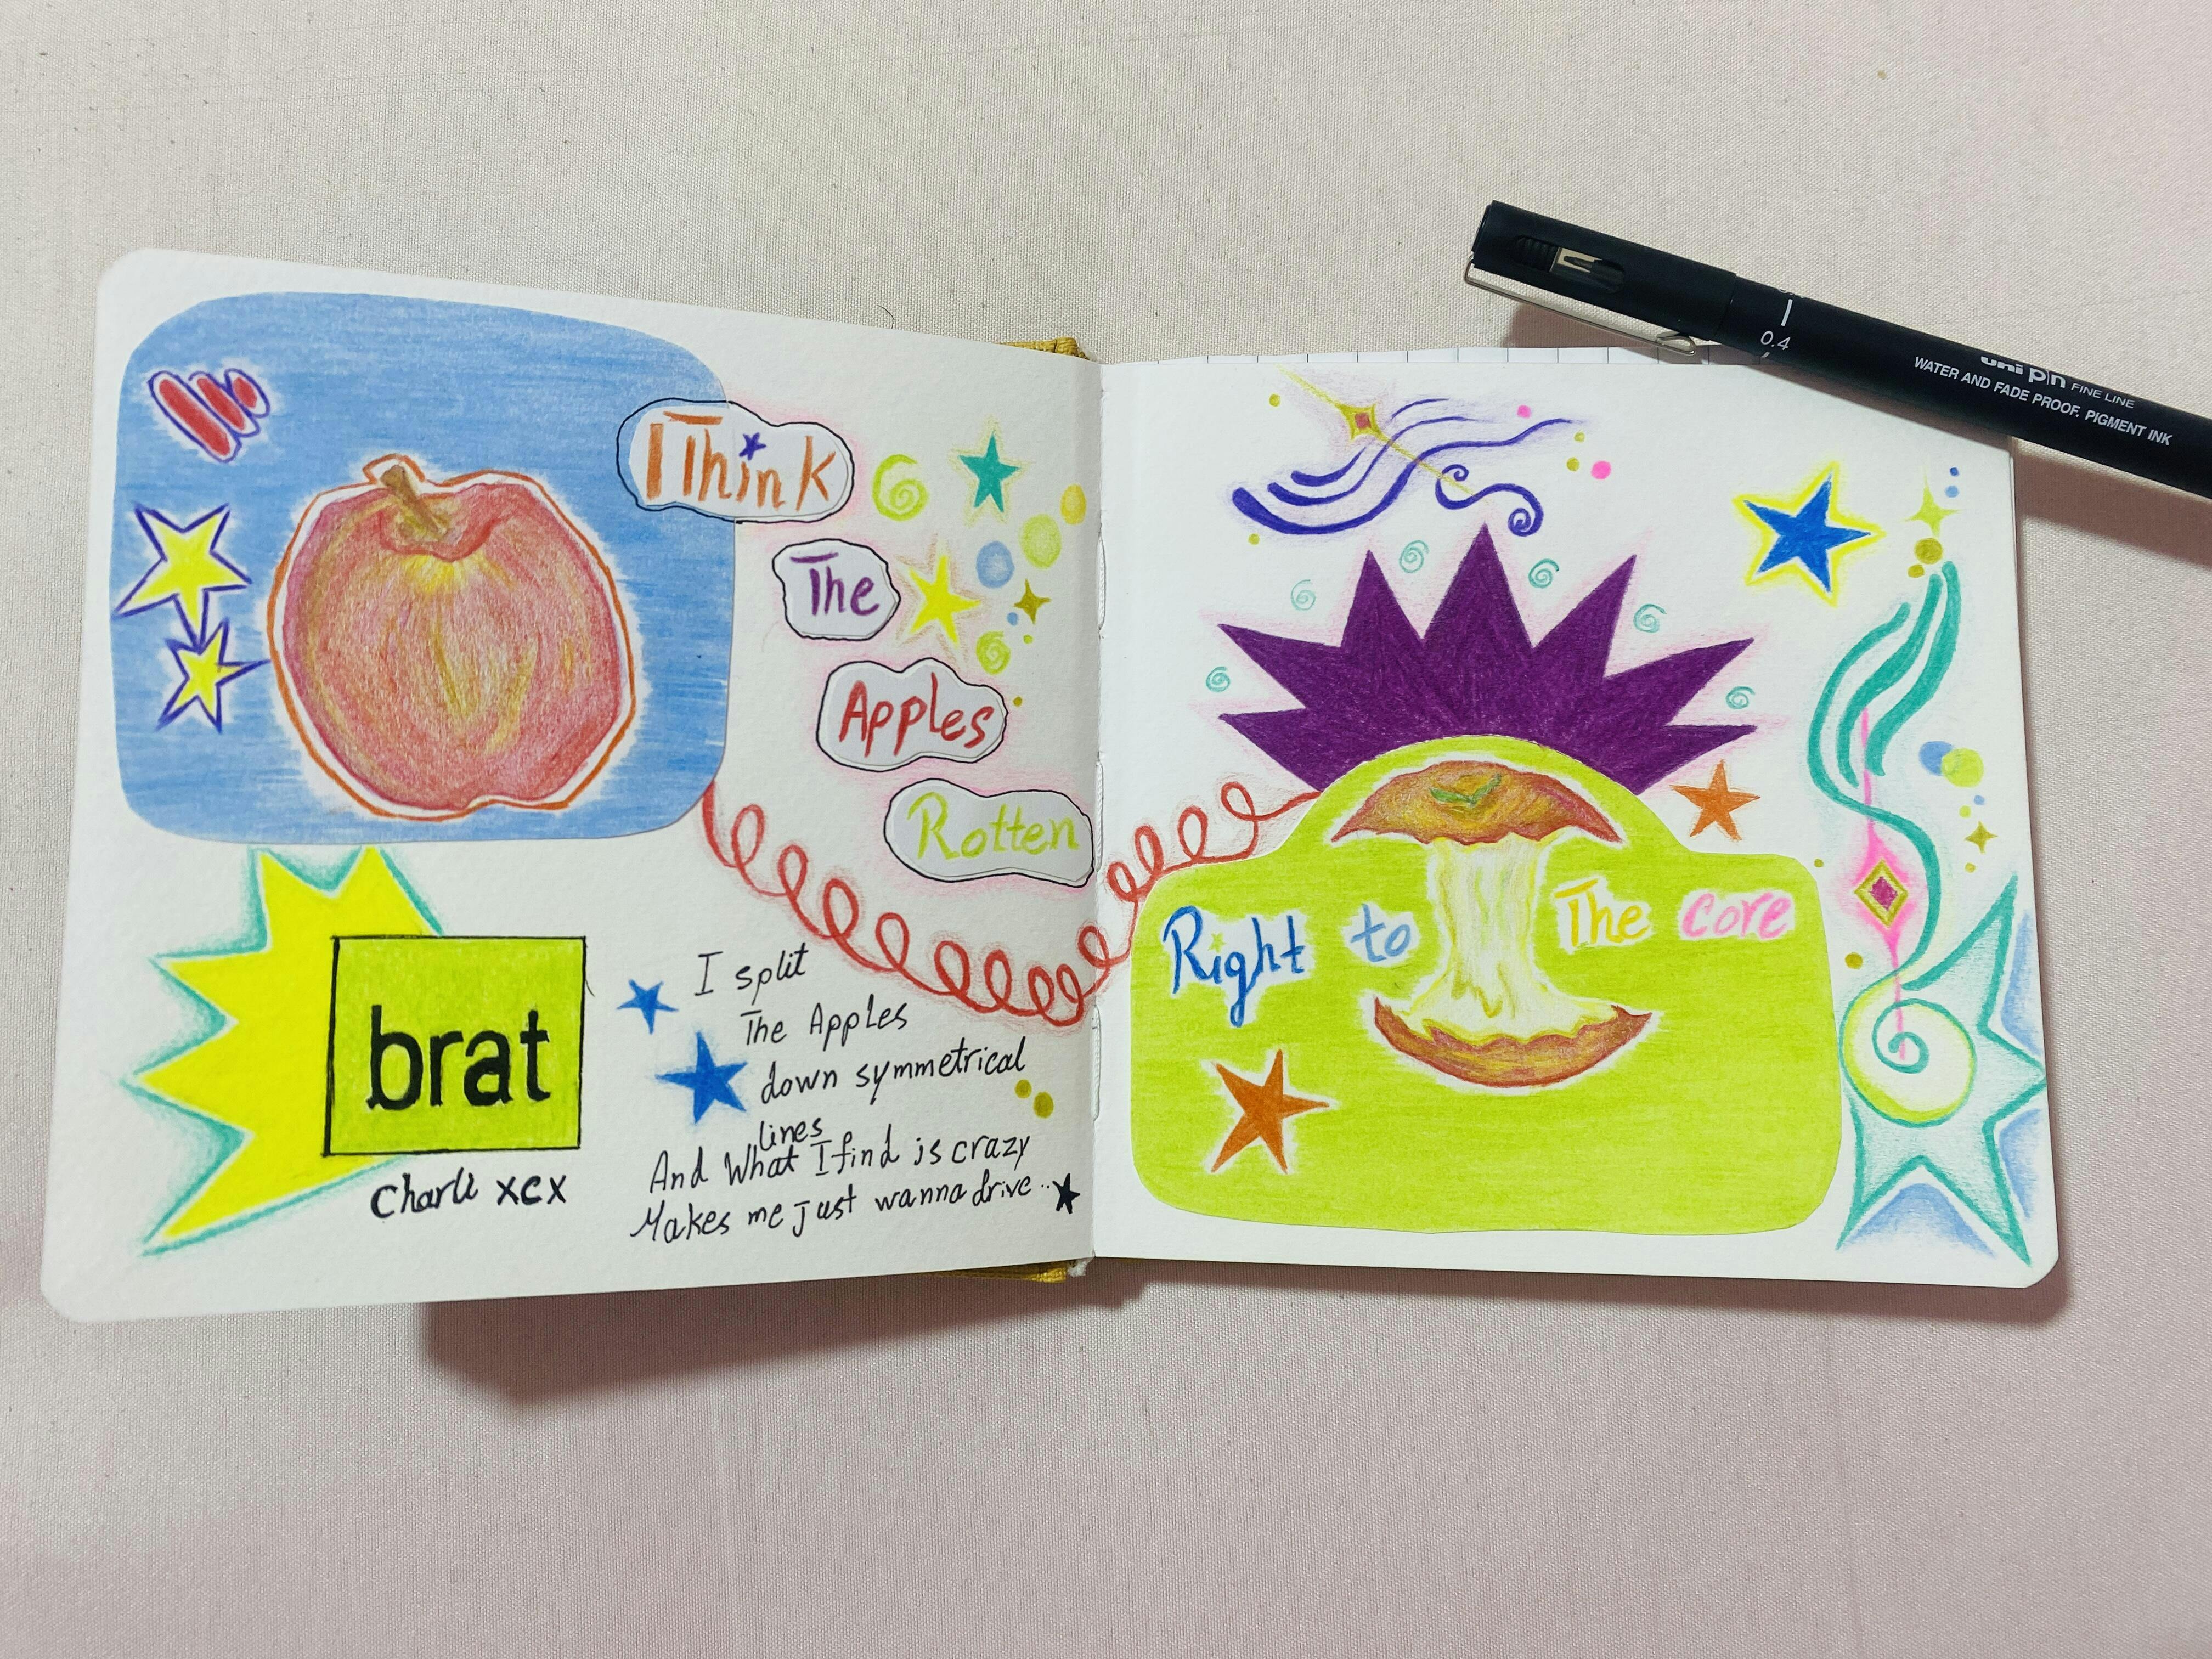 I Think
The
Apples
Rotten
Right to The core
brat
Charli xcx
I split
The Apples
down symmetrical
lines
And What I find is crazy
Makes me just wanna drive..
0.4
uni pin FINE LINE
WATER AND FADE PROOF. PIGMENT INK